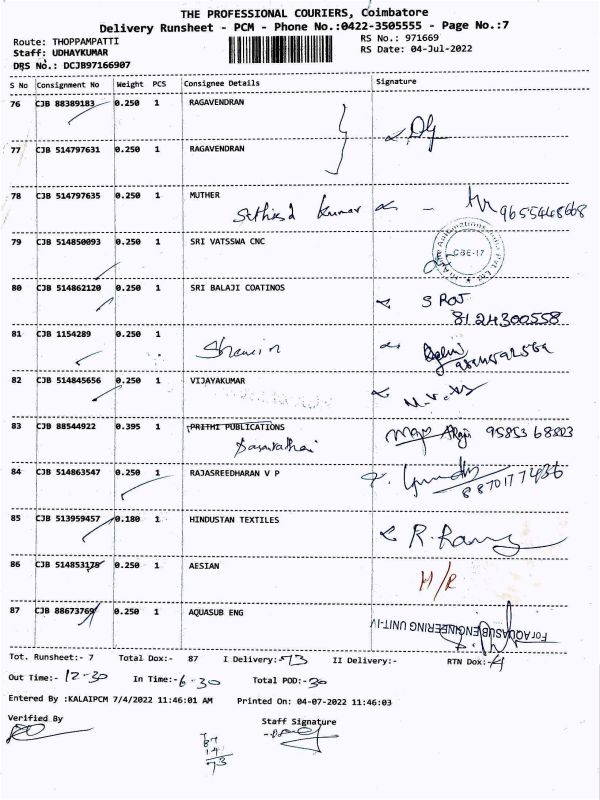 THE PROFESSIONAL COURIERS, Coimbatore
Delivery Runsheet - PCM - Phone No.:0422-3505555 - Page No.:7
Route: THOPPAMPATTI RS No.: 971669
Staff: UDHAYKUMAR RS Date: 04-Jul-2022
DRS No.: DCJB97166907
S No Consignment No Weight PCS Consignee Details Signature
76 CJB 88389183 0.250 1 RAGAVENDRAN
77 CJB 514797631 0.250 1 RAGAVENDRAN
78 CJB 514797635 0.250 1 MUTHER
Kumar 9655448668
79 CJB 514850093 0.250 1 SRI VATSSWA CNC
CBE-17
80 CJB 514862120 0.250 1 SRI BALAJI COATINOS
S Raj
8124300558
81 CJB 1154289 0.250 1
82 CJB 514845656 0.250 1 VIJAYAKUMAR
83 CJB 88544922 0.395 1 PRITHI PUBLICATIONS
84 CJB 514863547 0.250 1 RAJASREEDHARAN V P
8870177436
85 CJB 513959457 0.180 1 HINDUSTAN TEXTILES
86 CJB 514853178 0.250 1 AESIAN
H/R
87 CJB 88673769 0.250 1 AQUASUB ENG
For AQUASUB ENGINEERING UNIT-IV
Tot. Runsheet:- 7 Total Dox:- 87 I Delivery:- 73 II Delivery:- RTN Dox:-
Out Time:- 12-30 In Time:- 6-30 Total POD:- 30
Entered By :KALAIPCM 7/4/2022 11:46:01 AM Printed On: 04-07-2022 11:46:03
Verified By Staff Signature
87
14
73